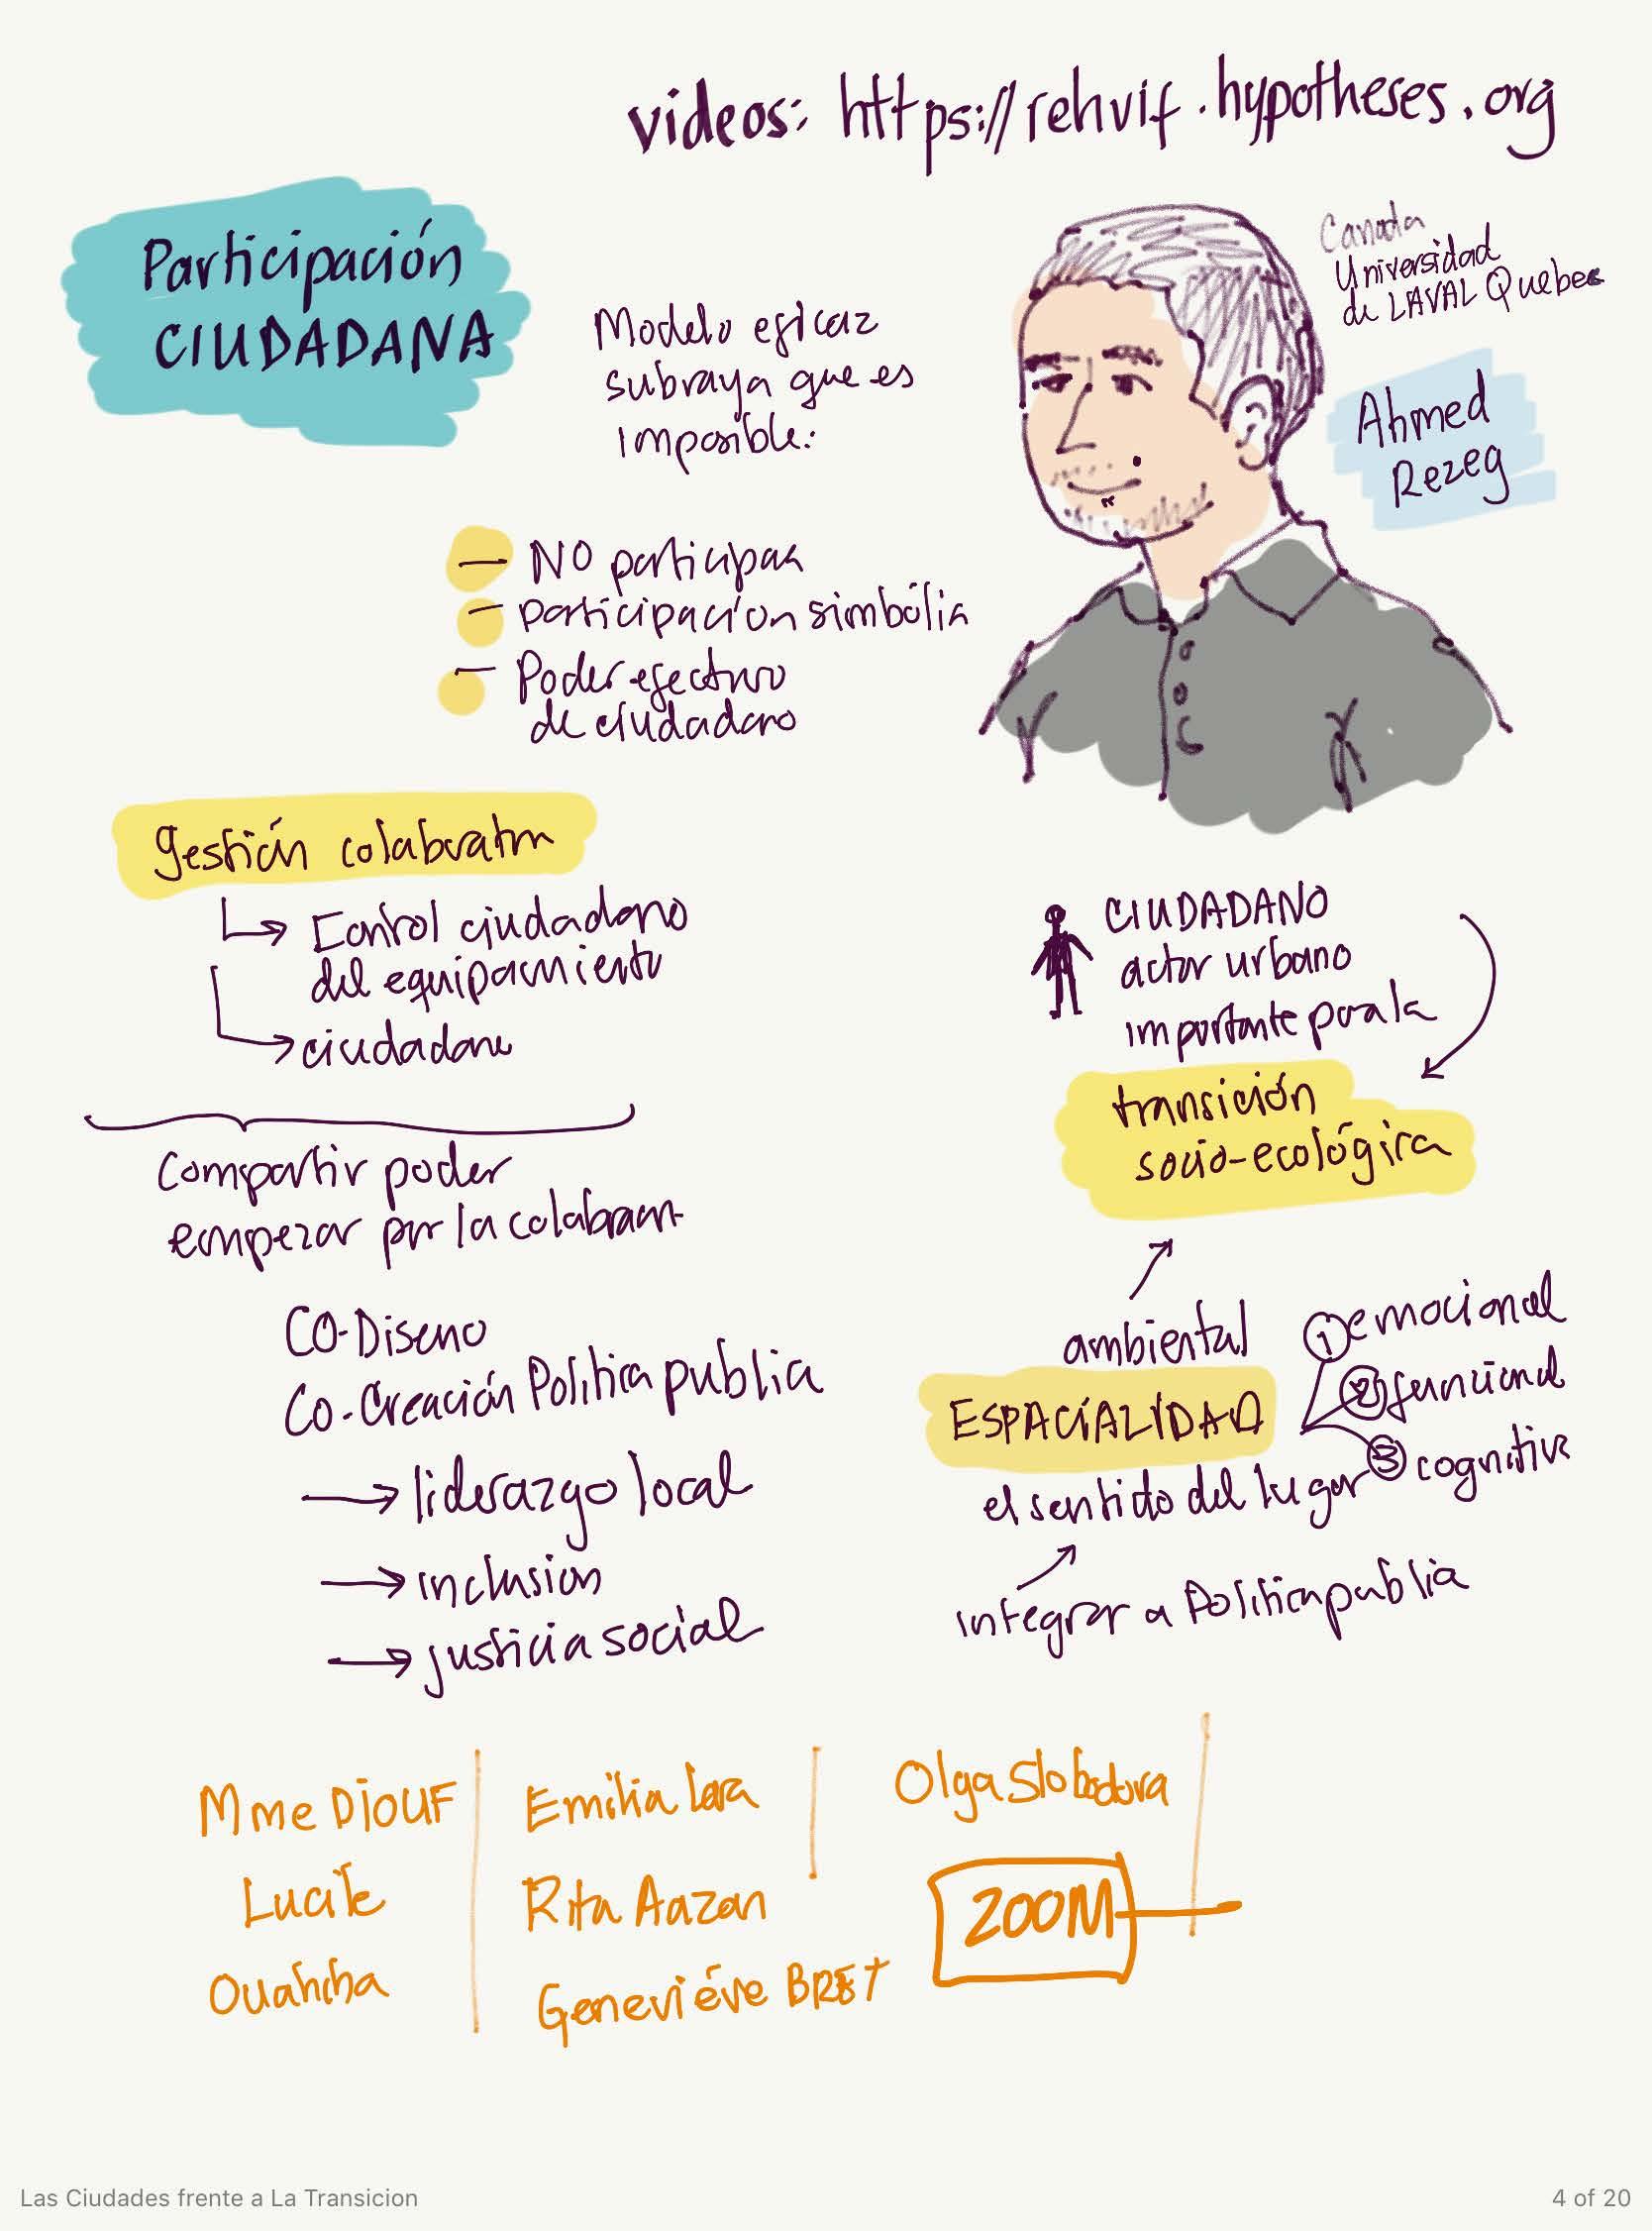 videos: https://rehvif.hypotheses.org
Participación
CIUDADANA
Modelo eficaz
subraya que es
imposible:
Canada
Universidad
de LAVAL Quebec
Ahmed
Rezeg
— NO participan
— participación simbólica
— Poder efectivo
de ciudadano
gestión colaborativa
Control ciudadano
del equipamiento
ciudadano
Compartir poder
empezar por la
CO-Diseno
Co-Creación Politica publica
liderazgo local
inclusion
justicia social
CIUDADANO
actor urbano
importante para la
transición
socio-ecológica
ambiental
ESPACIALIDAD
① emocional
② funcional
③ cognitiva
el sentido del lugar
integrar a Politica publica
Mme DIOUF
Lucile
Ouahcha
Emilia Lara
Rita Aazan
Geneviéve BRET
Olga Slobodova
ZOOM
Las Ciudades frente a La Transicion
4 of 20